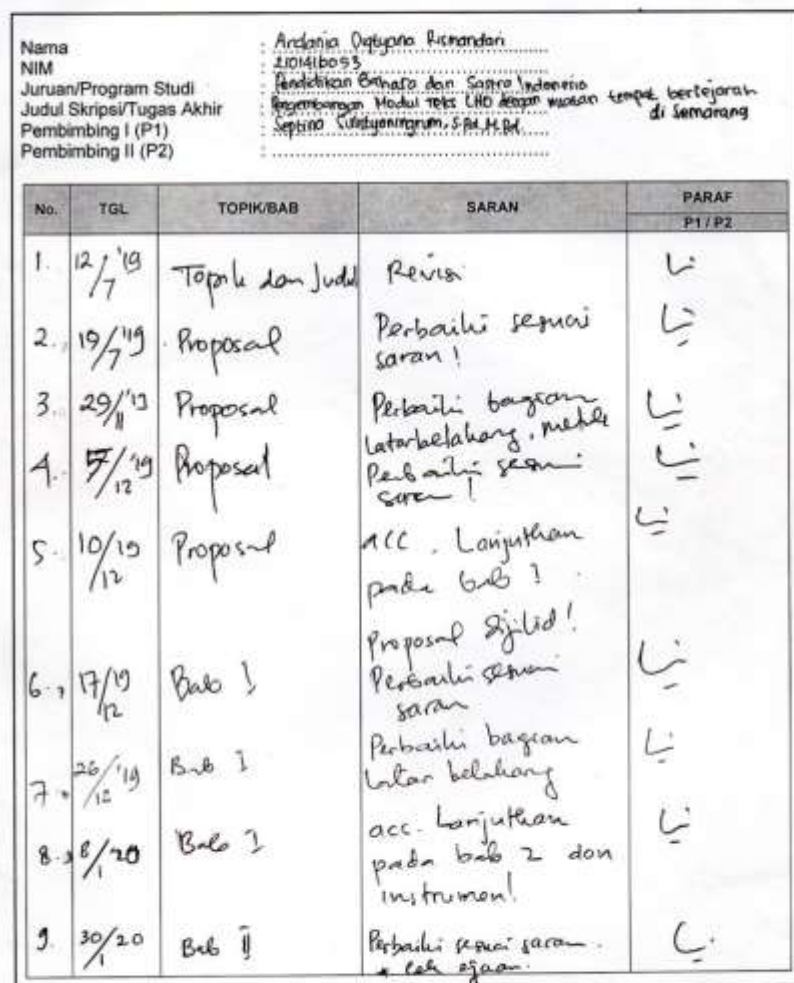 Nama : Andania Digtyana Rismandari
NIM : 2101416053
Juruan/Program Studi : Pendidikan Bahasa dan Sastra Indonesia
Judul Skripsi/Tugas Akhir : Pengembangan Modul Teks LHO dengan muatan tempat bersejarah
di Semarang
Pembimbing I (P1) : Septina Sulistyaningrum, S.Pd, M.Pd.
Pembimbing II (P2) :
No. TGL TOPIK/BAB SARAN PARAF
P1 / P2
1. 12/7 '19 Topik dan Judul Revisi
2. 19/7 '19 Proposal Perbaiki sesuai
saran !
3. 29/11 '19 Proposal Perbaiki bagian
latar belakang, metode
4. 5/12 '19 Proposal Perbaiki sesuai
saran !
5. 10/12 19 Proposal acc. Lanjutkan
pada bab I
Proposal dijilid!
6. 17/12 '19 Bab I Perbaiki sesuai
saran
7. 26/12 '19 Bab I Perbaiki bagian
latar belakang
8. 8/1 '20 Bab I acc. Lanjutkan
pada bab 2 dan
instrumen!
9. 30/1 20 Bab II Perbaiki sesuai saran.
cek ejaan.